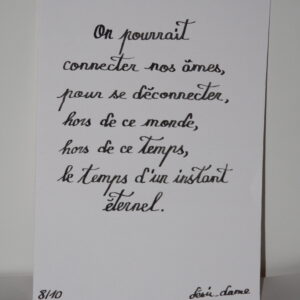 On pourrait
connecter nos âmes,
pour se déconnecter,
hors de ce monde,
hors de ce temps,
le temps d'un instant
éternel.
8/10